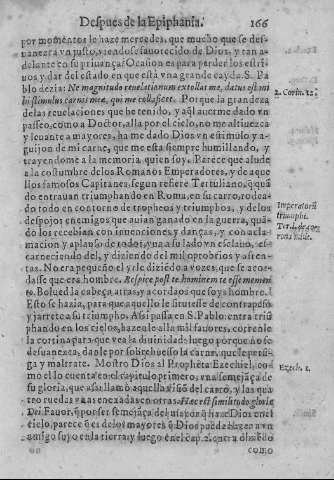 Despues de la Epiphania. 166
por momentos le haze mercedes, que mucho que se des-
uanezca vn justo, viendose fauorecido de Dios, y tan a-
delante en su priuança? Ocasion es para perder los estri-
uos y dar del estado en que està vna grande cayda. S. Pa
blo dezia: Ne magnitudo reuelationum extollat me, datus est mi
hi stimulus carnis meæ, qui me collaficet. Porque la grandeza
de las reuelaciones que he tenido, y aquel auerme dado vn
passeo, como a Doctor, alla por el cielo, no me altiuezca
y leuante a mayores, ha me dado Dios vn estimulo y a-
guijon de mi carne, que me està siempre humillando, y
trayendome a la memoria, quien soy. Parece que alude
a la costumbre de los Romanos Emperadores, y de aque
llos famosos Capitanes, segun refiere Tertuliano, q̃ quã
do entrauan triumphando en Roma, en su carro, rodea-
do todo en contorno de tropheos y triumphos, y de los
despojos enemigos que auian ganado en la guerra, quã
do los recebian con inuenciones y danças, y con acla-
macion y aplauso de todos, yua a su lado vn esclauo, es-
carneciendo del, y diziendo mil oprobrios y afren-
tas. No era pequeño el yrle diziẽdo a vozes, que se acor-
dasse que era hombre. Respice post te hominem te esse memen-
to. Bolued la cabeça atras, y acordaos que soys hombre.
Esto se hazia, para que aquello le siruiesse de contrapeso
y jarrete a su triumpho. Assi passa en S. Pablo: entra triũ
phando en los cielos, hazenle alla mil fauores, correnle
la cortina para que vea la diuinidad: luego porque no se
desuanezca, danle por sobrehuesso la carne, que le persi-
ga y maltrate. Mostro Dios al Propheta Ezechiel, co-
mo el lo cuenta en el capitulo primero, vna semejãça de
su gloria, que assi llamò aquella visiõ del carro, y las qua
tro ruedas vnas encaxadas en otras. Hæc est similitudo gloriæ
Dei. Fauor, q̃ por ser semejãça del mayor q̃ haze Dios en el
cielo, parece q̃ es de los mayores q̃ Dios puede hazer a vn
amigo suyo en la tierra; y luego en el cap. 2. entra diziẽdo
como
2. Corin. 12.
Imperatorũ
triumphi.
Ezech. 1.